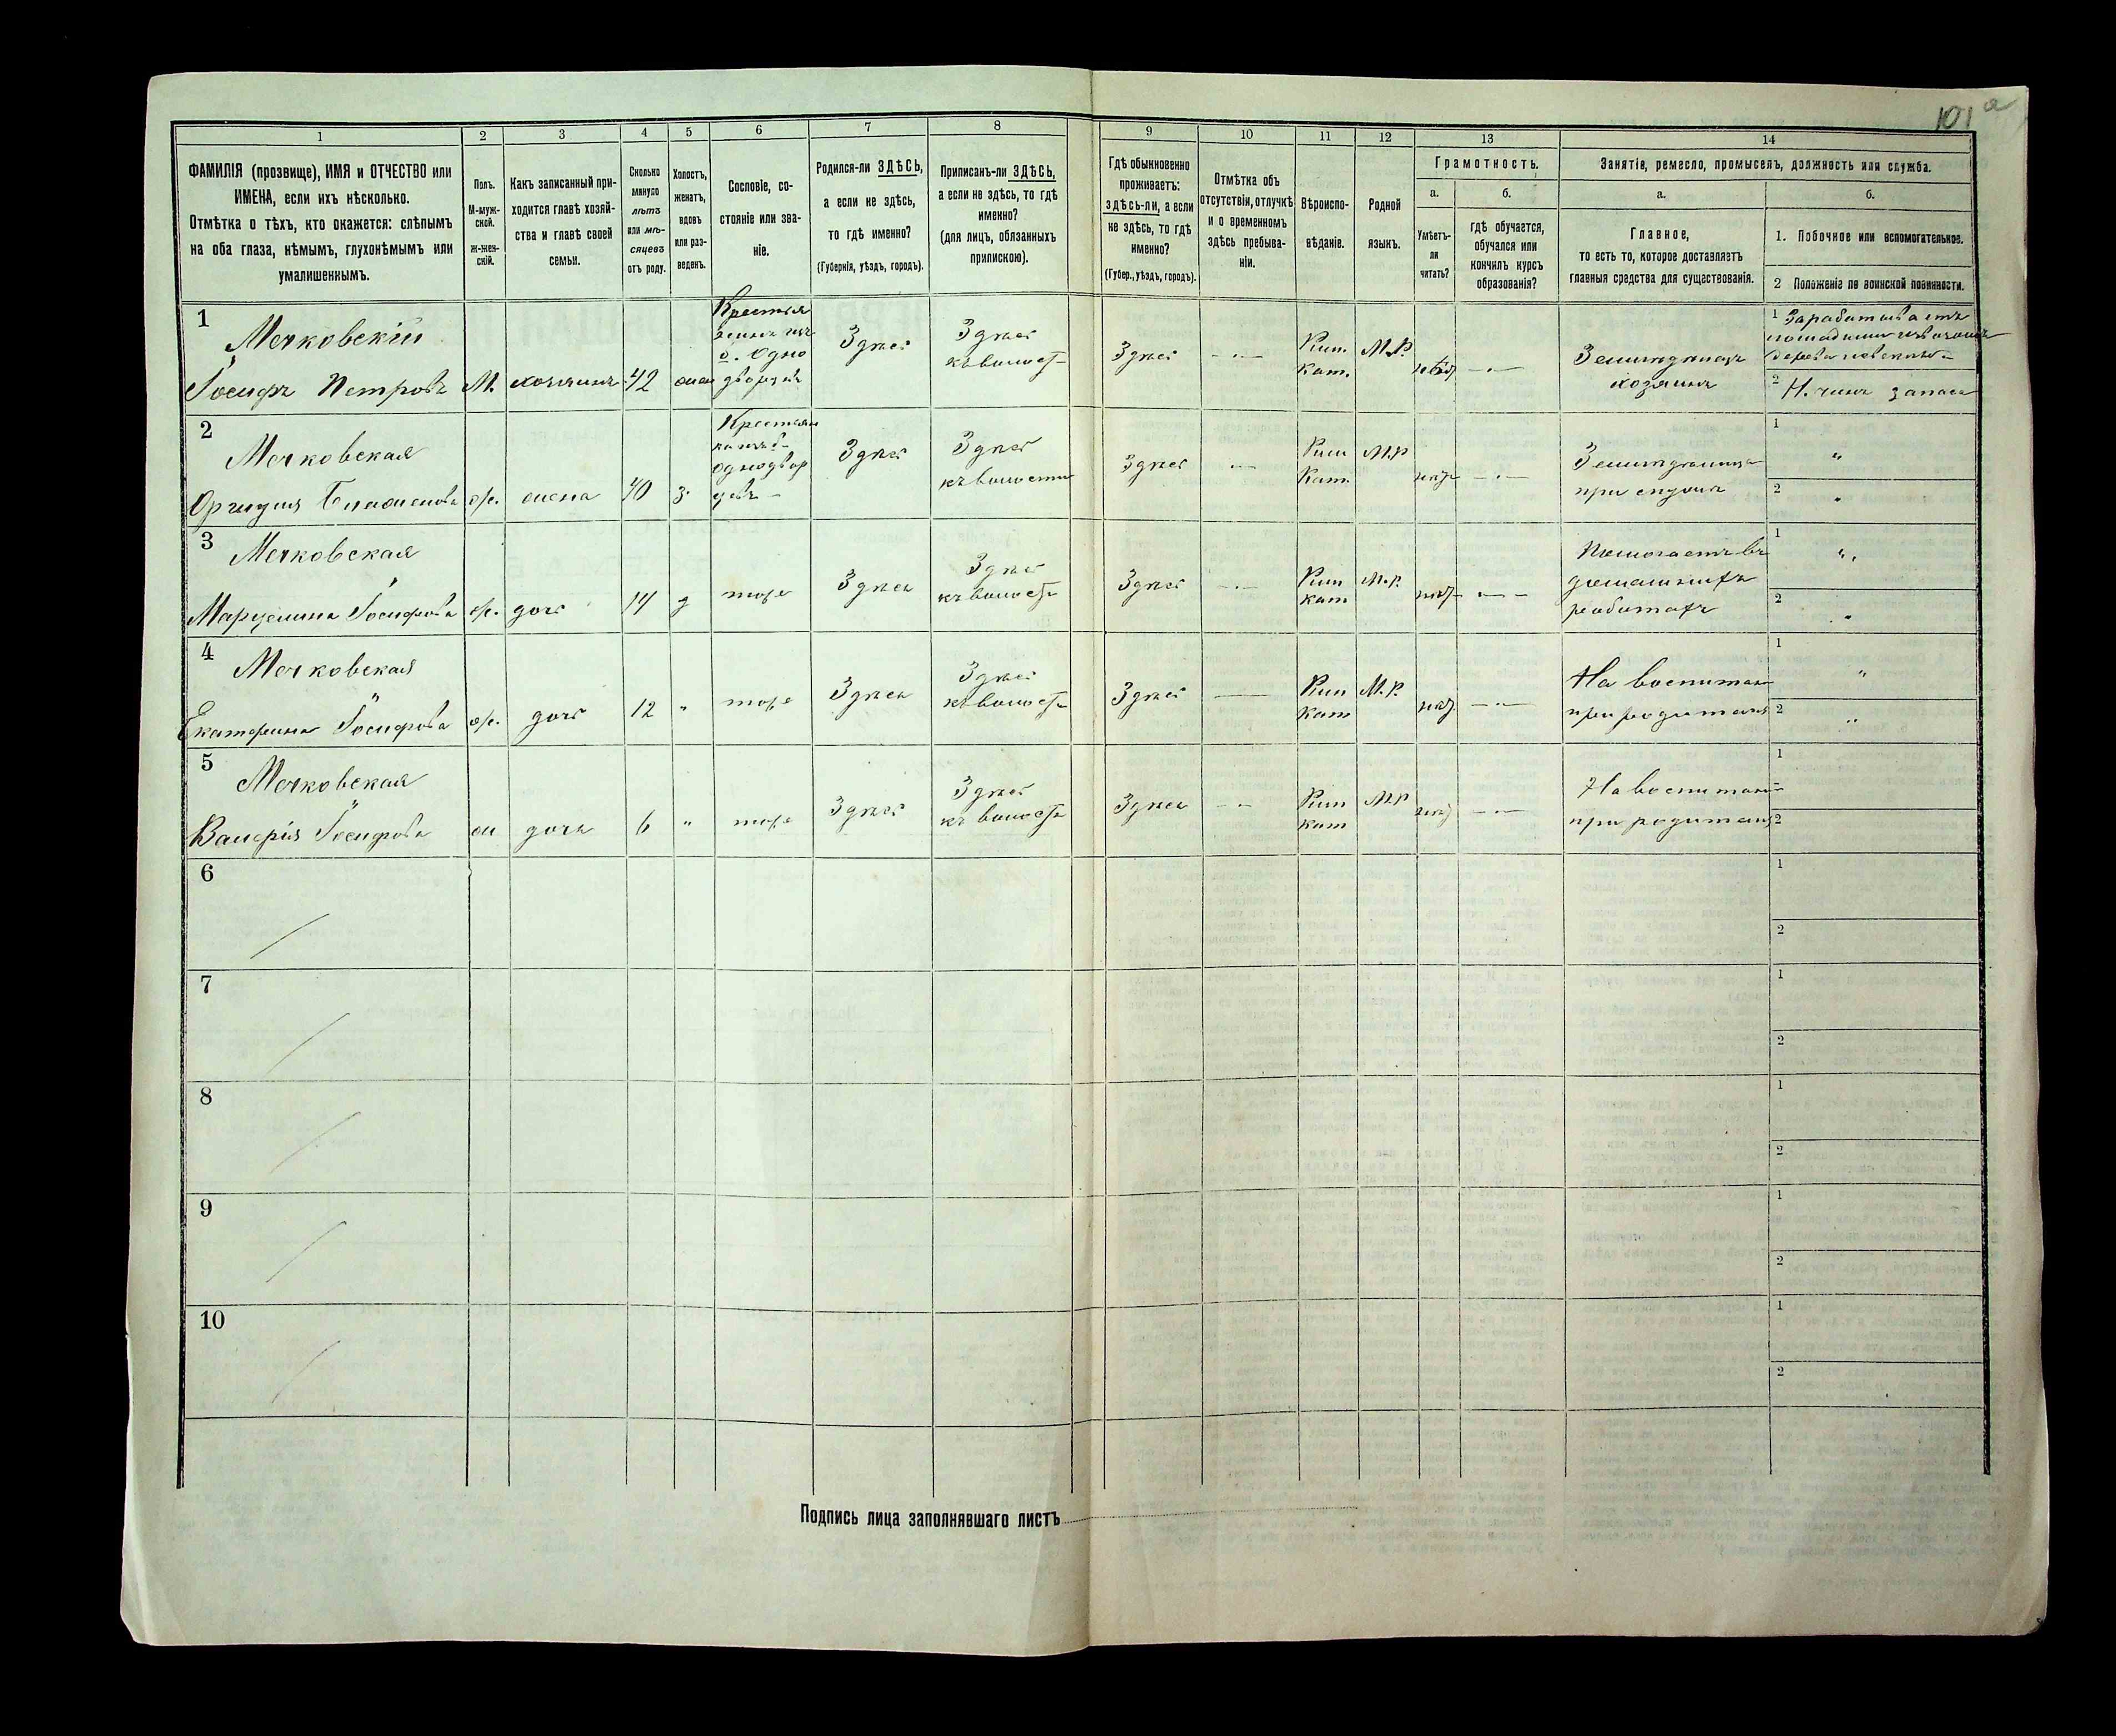 101 а
1 2 3 4 5 6 7 8 9 10 11 12 13 14
ФАМИЛІЯ (прозвище), ИМЯ и ОТЧЕСТВО или
ИМЕНА, если ихъ нѣсколько.
Отмѣтка о тѣхъ, кто окажется: слѣпымъ
на оба глаза, нѣмымъ, глухонѣмымъ или
умалишеннымъ.
Полъ.
М-муж-
ской.
ж-жен-
скій.
Какъ записанный при-
ходится главѣ хозяй-
ства и главѣ своей
семьи.
Сколько
минуло
лѣтъ
или мѣ-
сяцевъ
отъ роду.
Холостъ,
женатъ,
вдовъ
или раз-
веденъ.
Сословіе, со-
стояніе или зва-
ніе.
Родился-ли ЗДѢСЬ,
а если не здѣсь,
то гдѣ именно?
(Губернія, уѣздъ, городъ).
Приписанъ-ли ЗДѢСЬ,
а если не здѣсь, то гдѣ
именно?
(для лицъ, обязанныхъ
припискою).
Гдѣ обыкновенно
проживаетъ:
здѣсь-ли, а если
не здѣсь, то гдѣ
именно?
(Губер., уѣздъ, городъ).
Отмѣтка объ
отсутствіи, отлучкѣ
и о временномъ
здѣсь пребыва-
ніи.
Вѣроиспо-
вѣданіе.
Родной
языкъ.
Грамотность.
а.
Умѣетъ-
ли
читать?
б.
гдѣ обучается,
обучался или
кончилъ курсъ
образованія?
Занятіе, ремесло, промыселъ, должность или служба.
а.
Главное,
то есть то, которое доставляетъ
главныя средства для существованія.
б.
1. Побочное или вспомогательное.
2 Положеніе по воинской повинности.
1
Мечковскій
Іосифъ Петровъ
М.
хозяинъ
42
жен
Крестья
нинъ изъ
б. Одно
дворцевъ
Здѣсь
Здѣсь
къ волост
Здѣсь
Рим.
Кат.
М.Р.
нѣт
Земледѣлецъ
хозяинъ
1 Зарабатываетъ
2 Н. чинъ запаса
2
Мечковская
ж.
жена
40
з.
Крестьян
ка изъ б.
Однодвор
цевъ
Здѣсь
Здѣсь
къ волости
Здѣсь
Рим
Кат.
М.Р
нѣт
1 "
2 "
3
Мечковская
Марцелина Іосифова
ж.
дочь
14
д
тоже
Здѣсь
Здѣсь
къ волост
Здѣсь
Рим
кат
М.Р.
нѣт
Помогаетъ въ
домашнихъ
работахъ
1 "
2 "
4
Мечковская
Екатерина Іосифова
ж.
дочь
12
"
тоже
Здѣсь
Здѣсь
къ волост
Здѣсь
Рим
Кат
М.Р.
нѣт
На воспитан
при родителях
1 "
2 "
5
Мечковская
Валерія Іосифова
ж
дочь
6
"
тоже
Здѣсь
Здѣсь
къ волост
Здѣсь
Рим
кат
М.Р
нѣт
На воспитан
при родителях
1
2
6
1
2
7
1
2
8
1
2
9
1
2
10
1
2
Подпись лица заполнявшаго листъ